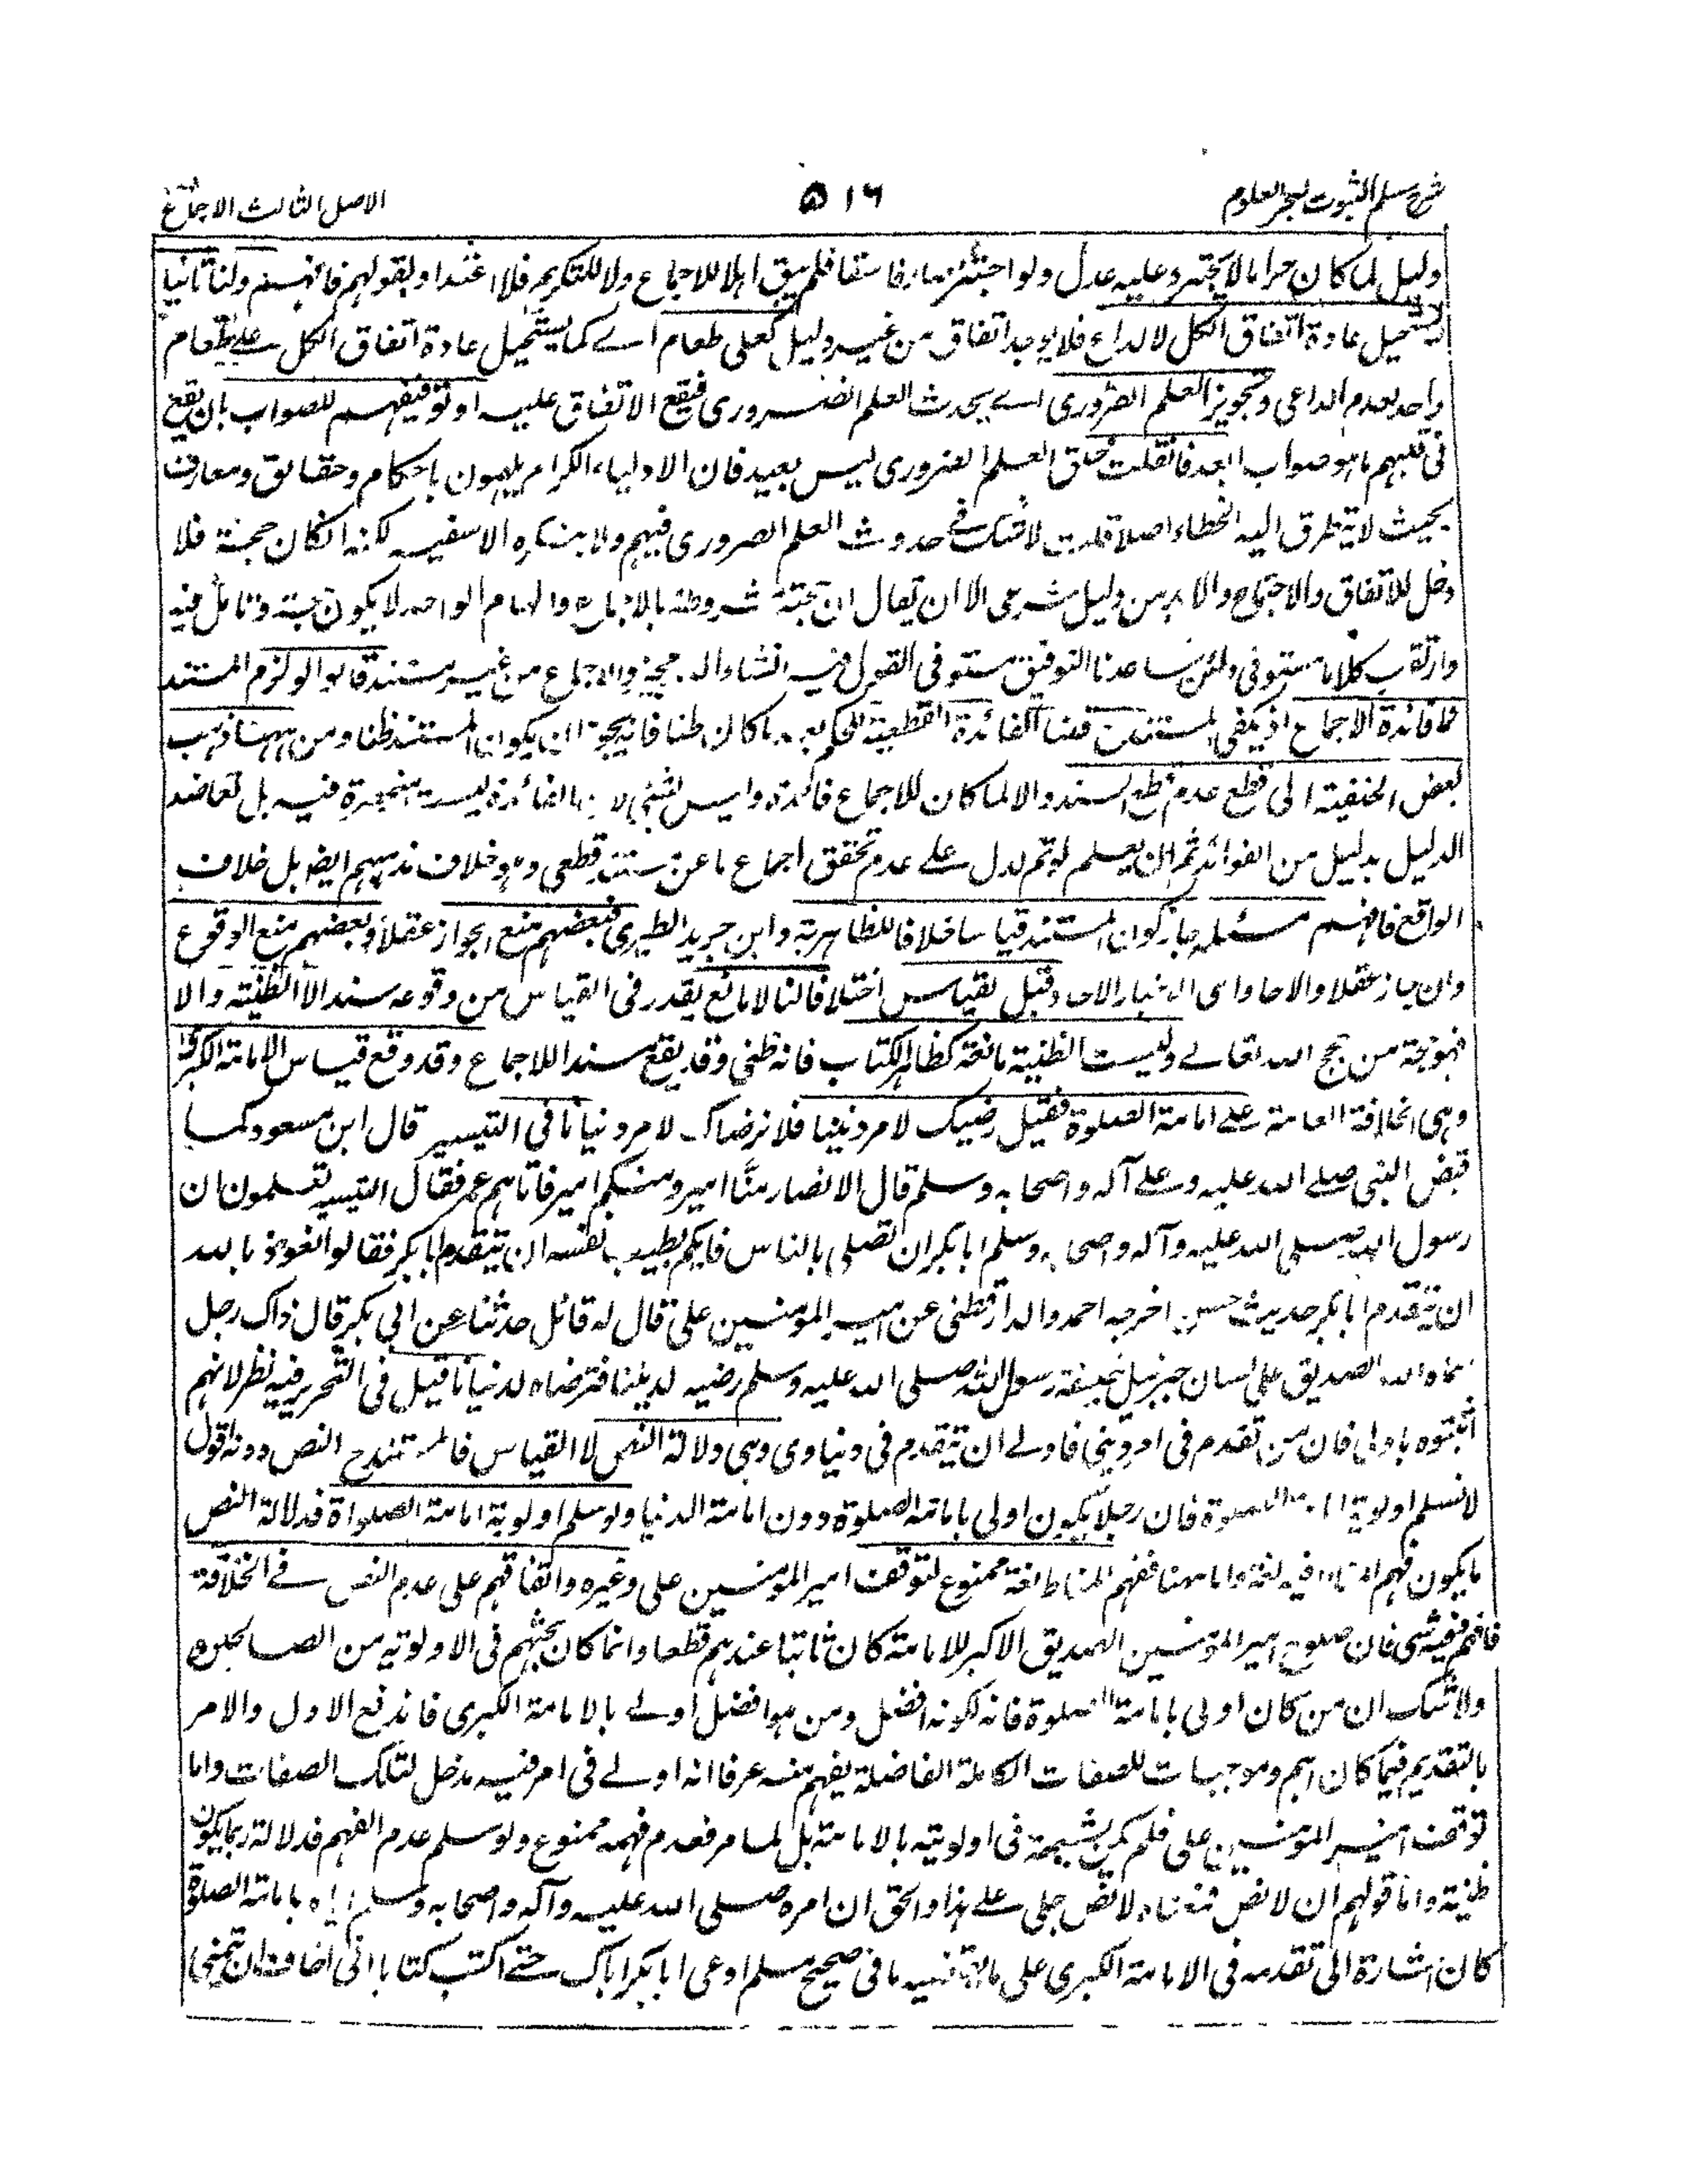 شرح مسلم الثبوت لبحر العلوم
٥١٦
الاصل الثالث الاجماع
دليل لما كان حراما لا يجتهد عليه عدل ولو اجترء صار فاسقا فلم يبق اهلا للاجماع ولا للتكريم فلا اعتداد لقولهم فافهم ولنا ثانيا
يستحيل عادة اتفاق الكل لا لداع فلا يوجد اتفاق من غير دليل كعلى طعام اے كما يستحيل عادة اتفاق الكل علے طعام
واحد لعدم الداعي وتجويز العلم الضروري اے يحدث العلم الضروري فيقع الاتفاق عليه او توفيقهم للصواب بان يقع
في قلبهم ما هو صواب ابعد فان قلت خلق العلم الضروري ليس ببعيد فان الاولياء الكرام يلهمون باحكام وحقائق ومعارف
بحيث لا يتطرق اليه الخطاء اصلا قلت لا شك في حدوث العلم الضروري فيهم ولا ينكره الا سفيه لكنه انكان حجة فلا
دخل للاتفاق والاجتماع والا لا بد من دليل شرعي الا ان يقال ان حجته مشروطة بالاجماع والهام الواحد لا يكون حجة وتامل فيه
وارتقب كلاما مستوفى ولئن ساعدنا التوفيق نستوفي القول فيه انشاء الله مجيزو الاجماع من غير مستند قالوا لو لزم المستند
فما فائدة الاجماع اذ يكفي المستند قلنا الفائدة القطعية للحكم بعد ما كان ظنا فانه يجوز ان يكون المستند ظنا ومن ههنا ذهب
بعض الحنفية الى قطع عدم قطع السند والا لما كان للاجماع فائدة وليس بشئ لان الفائدة ليست منحصرة فيه بل تعاضد
الدليل بدليل من الفوائد ثم ان يعلم لو تم لدل علے عدم تحقق اجماع ما عن مستند قطعي وهو خلاف مذهبهم ايضا بل خلاف
الواقع فافهم مسئلة جاز كون المستند قياسا خلافا للظاهرية وابن جرير الطبري فبعضهم منع الجواز عقلا وبعضهم منع الوقوع
وان جاز عقلا والاحاد اي اخبار الاحاد قيل كقياس اختلافا لنا لا مانع يقدر في القياس من وقوعه سندا الا الظنية والا
فهو حجة من حجج الله تعالے وليست الظنية مانعة كظاهر الكتاب فانه ظني وقد يقع سندا للاجماع وقد وقع قياس الامامة الكبرى
وهي الخلافة العامة علے امامة الصلوة فقيل رضيك لامر ديننا فلا نرضاك لامر دنيانا في التيسير قال ابن مسعود لما
قبض النبي صلے الله عليه وعلے آله واصحابه وسلم قال الانصار منّا امير ومنكم امير فاتاهم عمر فقال الستم تعلمون ان
رسول الله صلى الله عليه وآله واصحابه وسلم ابا بكر ان تصلي بالناس فايكم يطيب نفسه ان يتقدم ابا بكر فقالوا نعوذ بالله
ان نتقدم ابا بكر حديث حسن اخرجه احمد والدارقطني عن امير المومنين علي قال له قائل حدثنا عن ابي بكر قال ذاك رجل
سماه الله الصديق على لسان جبرئيل خليفة رسول الله صلى الله عليه وسلم رضيه لديننا فرضناه لدنيانا قيل في التحرير فيه نظر لانهم
اثبتوه باولى فان من تقدم في امر ديني فاولے ان يتقدم في دنياوي وهي دلالة النص لا القياس فالمستند ح النص دونه اقول
لا نسلم اولوية امامة الصلوة فان رجلا يكون اولى بامامة الصلوة دون امامة الدنيا ولو سلم اولوية امامة الصلواة فدلالة النص
ما يكون فهم المناط فيه لغة واما ههنا ففهم المناط لغة ممنوع لتوقف امير المومنين علي وغيره واتفاقهم على عدم النص في الخلافة
فافهم ففيه شئ فان صلوح امير المؤمنين الصديق الاكبر للامامة كان ثابتا عندهم قطعا وانما كان بحثهم في الاولوية من الصالحين
ولا شك ان من كان اولى بامامة الصلوة فانه لكونه افضل ومن هو افضل اولے بالامامة الكبرى فاندفع الاول والامر
بالتقديم فيما كان اهم وموجبات للصفات الكاملة الفاضلة يفهم منه عرفا انه اولے في امر فيه مدخل لتلك الصفات واما
توقف امير المؤمنين علي فلم يكن بشبهة في اولويته بالامامة بل لما مر فعدم فهمه ممنوع ولو سلم عدم الفهم فدلالة ربما يكون
ظنية واما قولهم ان لا نص فمعناه لا نص جلي علے هذا والحق ان امره صلى الله عليه وآله واصحابه وسلم اياه بامامة الصلوة
كان اشارة الى تقدمه في الامامة الكبرى على ما يقتضيه ما في صحيح مسلم ادعي ابا بكر اباك حتے اكتب كتابا اني اخاف ان يتمنى